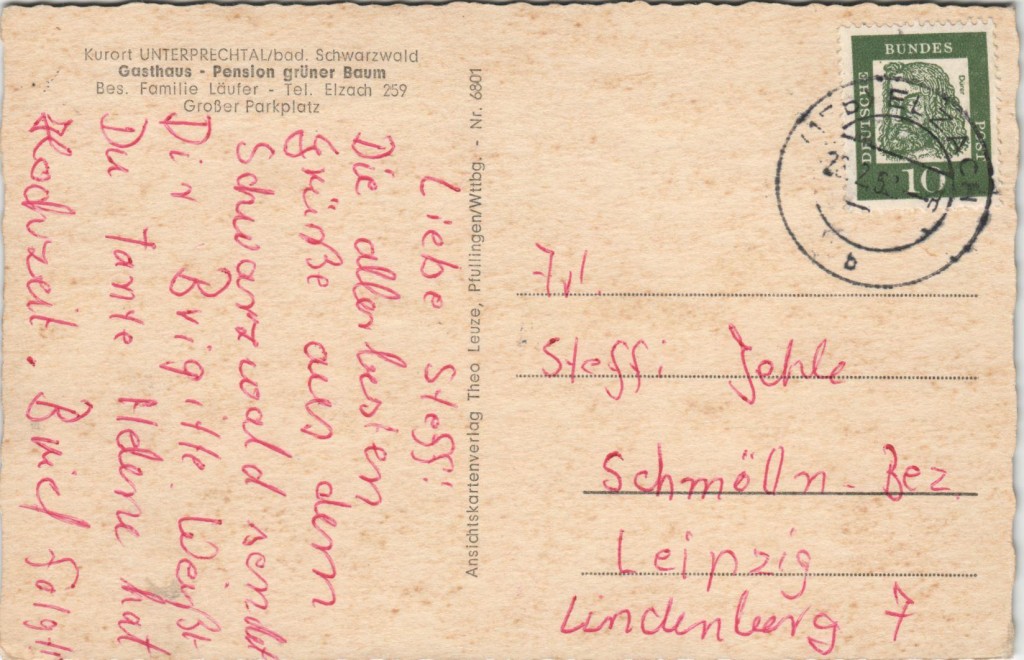 Kurort UNTERPRECHTAL/bad. Schwarzwald
Gasthaus - Pension grüner Baum
Bes. Familie Läufer - Tel. Elzach 259
Großer Parkplatz
Liebe Steffi
Die allerbesten
Grüße aus dem
Schwarzwald sendet
Dir Brigitte. Weißt
Du Tante Helene hat
Hochzeit. Brief folgt
Ansichtskartenverlag Theo Leuze, Pfullingen/Wttbg. - Nr. 6801
DEUTSCHE
BUNDES
POST
Dürer
10
ELZACH
b
Frl.
Steffi Jehle
Schmölln - Bez.
Leipzig
Lindenberg 7